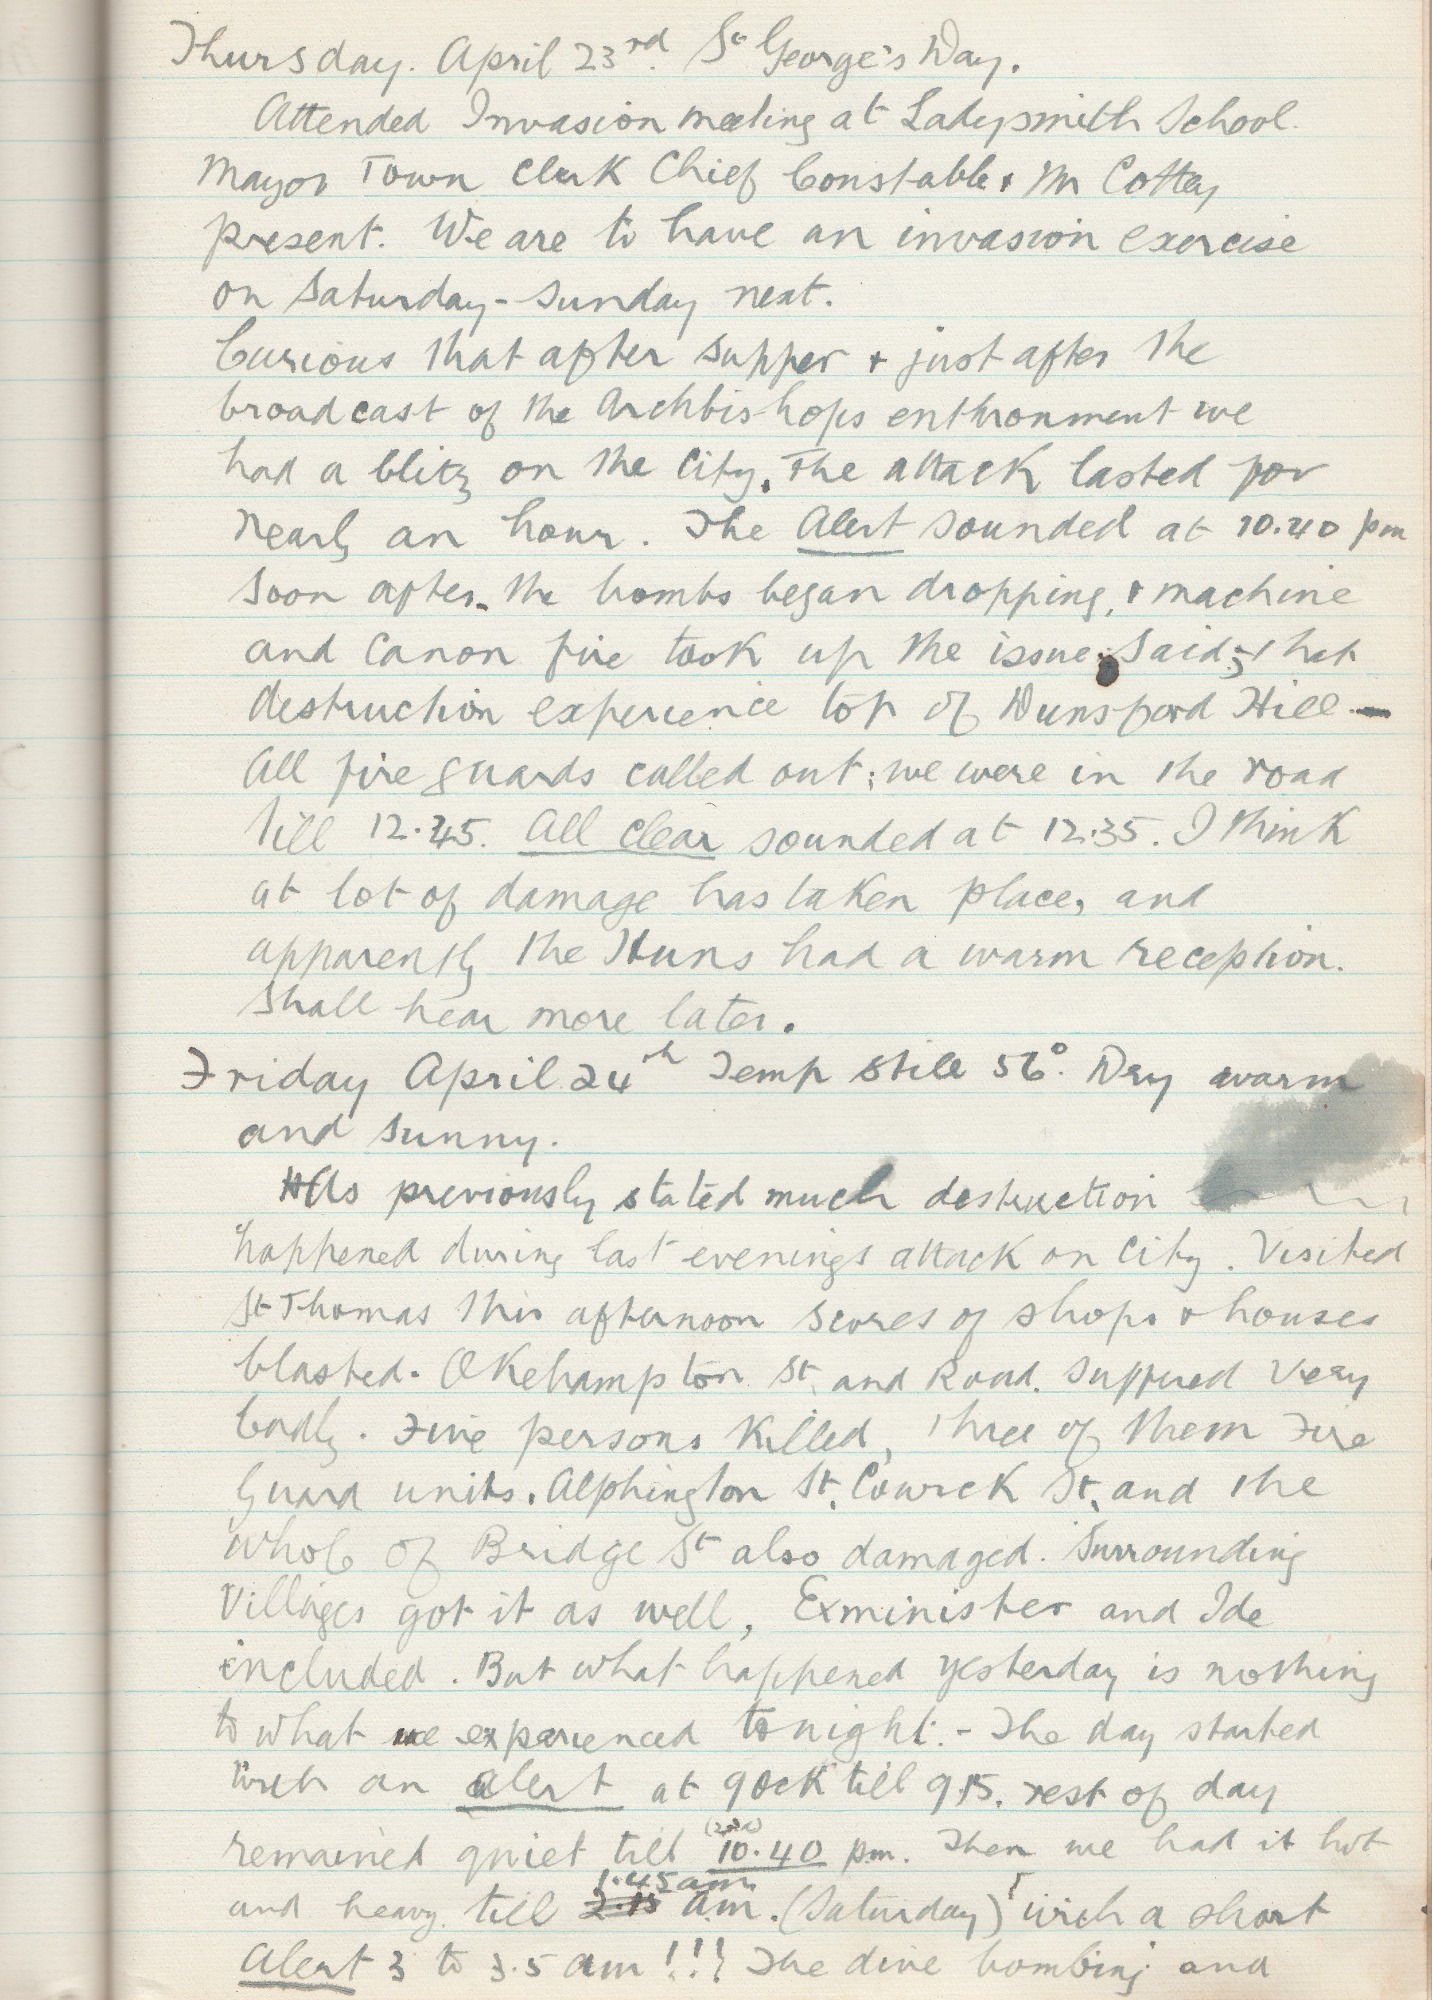 Thursday. April 23rd. St George's Day.
Attended Invasion meeting at Ladysmith School.
Mayor Town Clerk Chief Constable & Mr Cottey
present. We are to have an invasion exercise
on Saturday-Sunday next.
Curious that after supper & just after the
broadcast of the Archbishops enthronment we
had a blitz on the City. The attack lasted for
nearly an hour. The Alert sounded at 10.40 pm
soon after the bombs began dropping, & machine
and canon fire took up the issue. Said that
destruction experience top of Dunsford Hill -
All fire guards called out; we were in the road
till 12.45. All clear sounded at 12.35. I think
at lot of damage has taken place, and
apparently the Huns had a warm reception.
Shall hear more later.
Friday April 24th Temp still 56°. Dry warm
and sunny.
As previously stated much destruction
happened during last evenings attack on City. Visited
St Thomas this afternoon scores of shops & houses
blasted. Okehampton St. and Road. suffered very
badly. Five persons killed, three of them Fire
Guard units. Alphington St. Cowick St. and the
whole of Bridge St also damaged. Surrounding
Villages got it as well, Exminister and Ide
included. But what happened yesterday is nothing
to what we experienced tonight. - The day started
with an alert at 9ock till 9.15. rest of day
remained quiet till 10.40 pm. Then we had it hot
1.45am
and heavy till 2.15 am. (Saturday) with a short
Alert 3 to 3.5 am!!! The dive bombing and